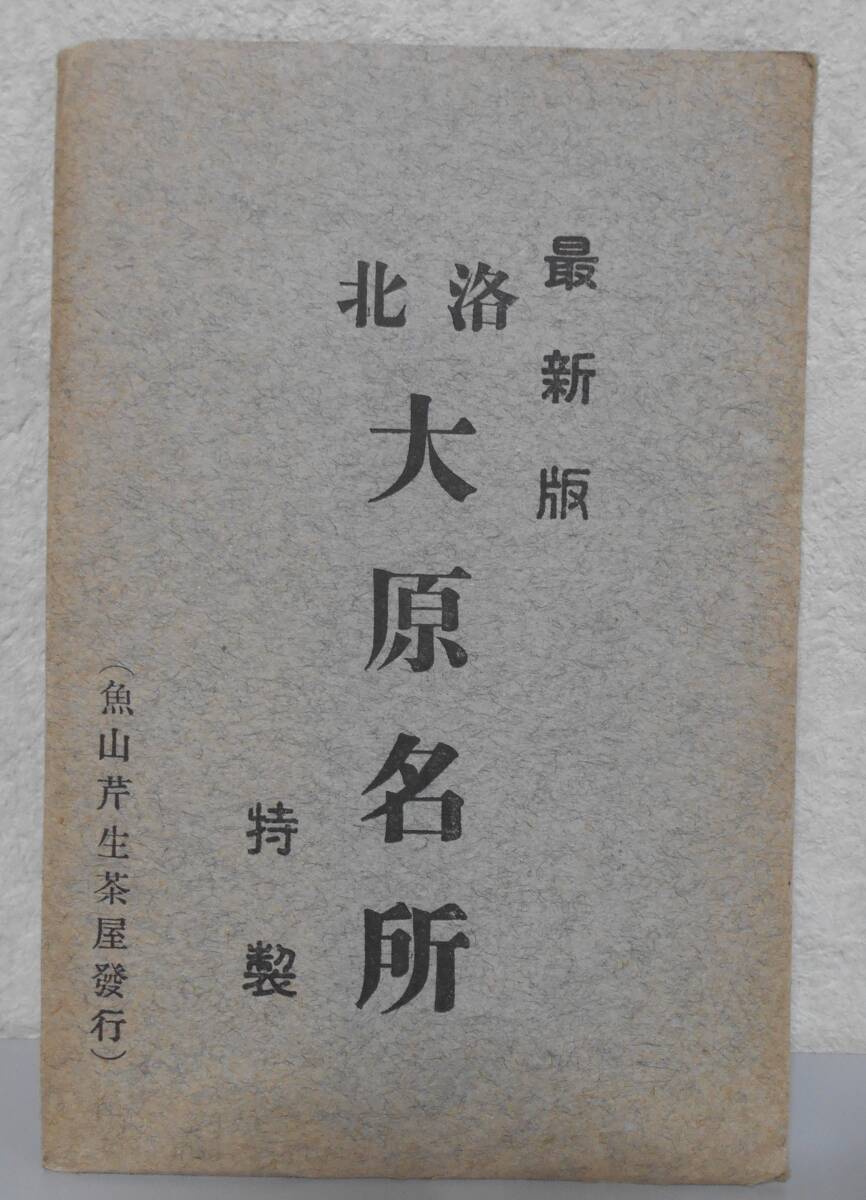 最新版
洛北
大原名所
特製
（魚山芹生茶屋發行）